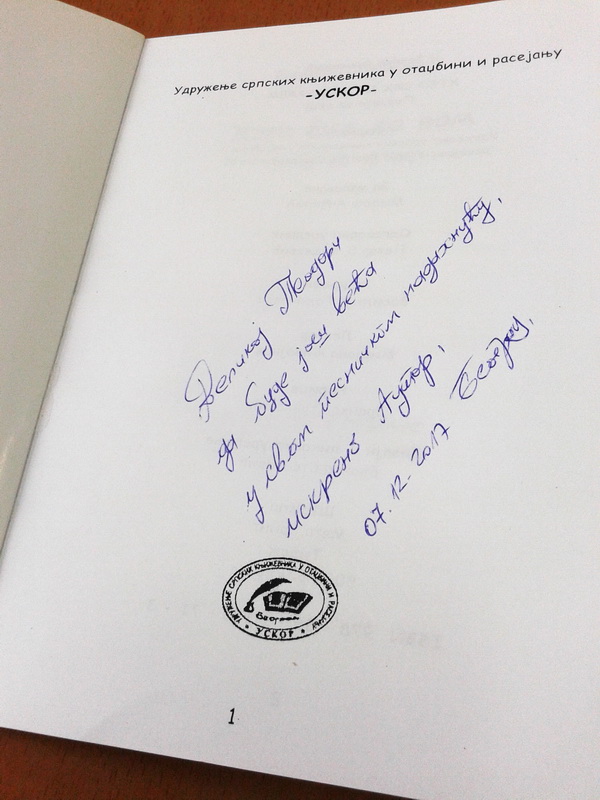 Удружење српских књижевника у отаџбини и расејању
-УСКОР-
Великој Теодори
да буде још већа
у свом песничком надахнућу,
искрено Аутор,
07.12.2017 Београд,
УДРУЖЕЊЕ СРПСКИХ КЊИЖЕВНИКА У ОТАЏБИНИ И РАСЕЈАЊУ
Београд
• УСКОР •
1